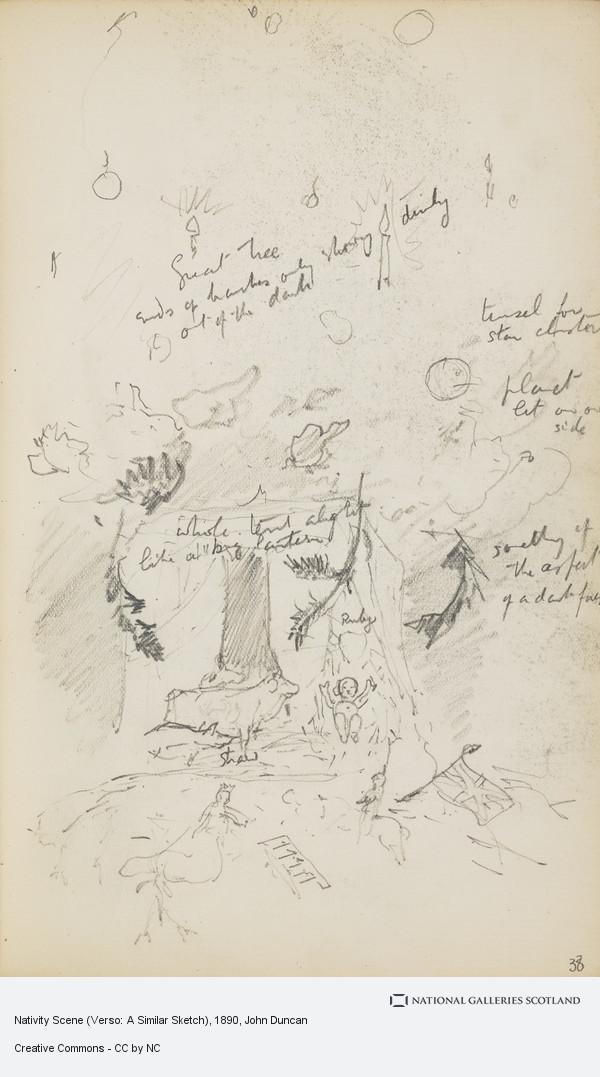 Great tree
ends of branches only showing dimly
out of the dark
tinsel for
star clusters
planet
lit on one
side
whole tent alight
like a big lantern
something of
the aspect
of a dark
Ruby
straw
38
NATIONAL GALLERIES SCOTLAND
Nativity Scene (Verso: A Similar Sketch), 1890, John Duncan
Creative Commons - CC by NC